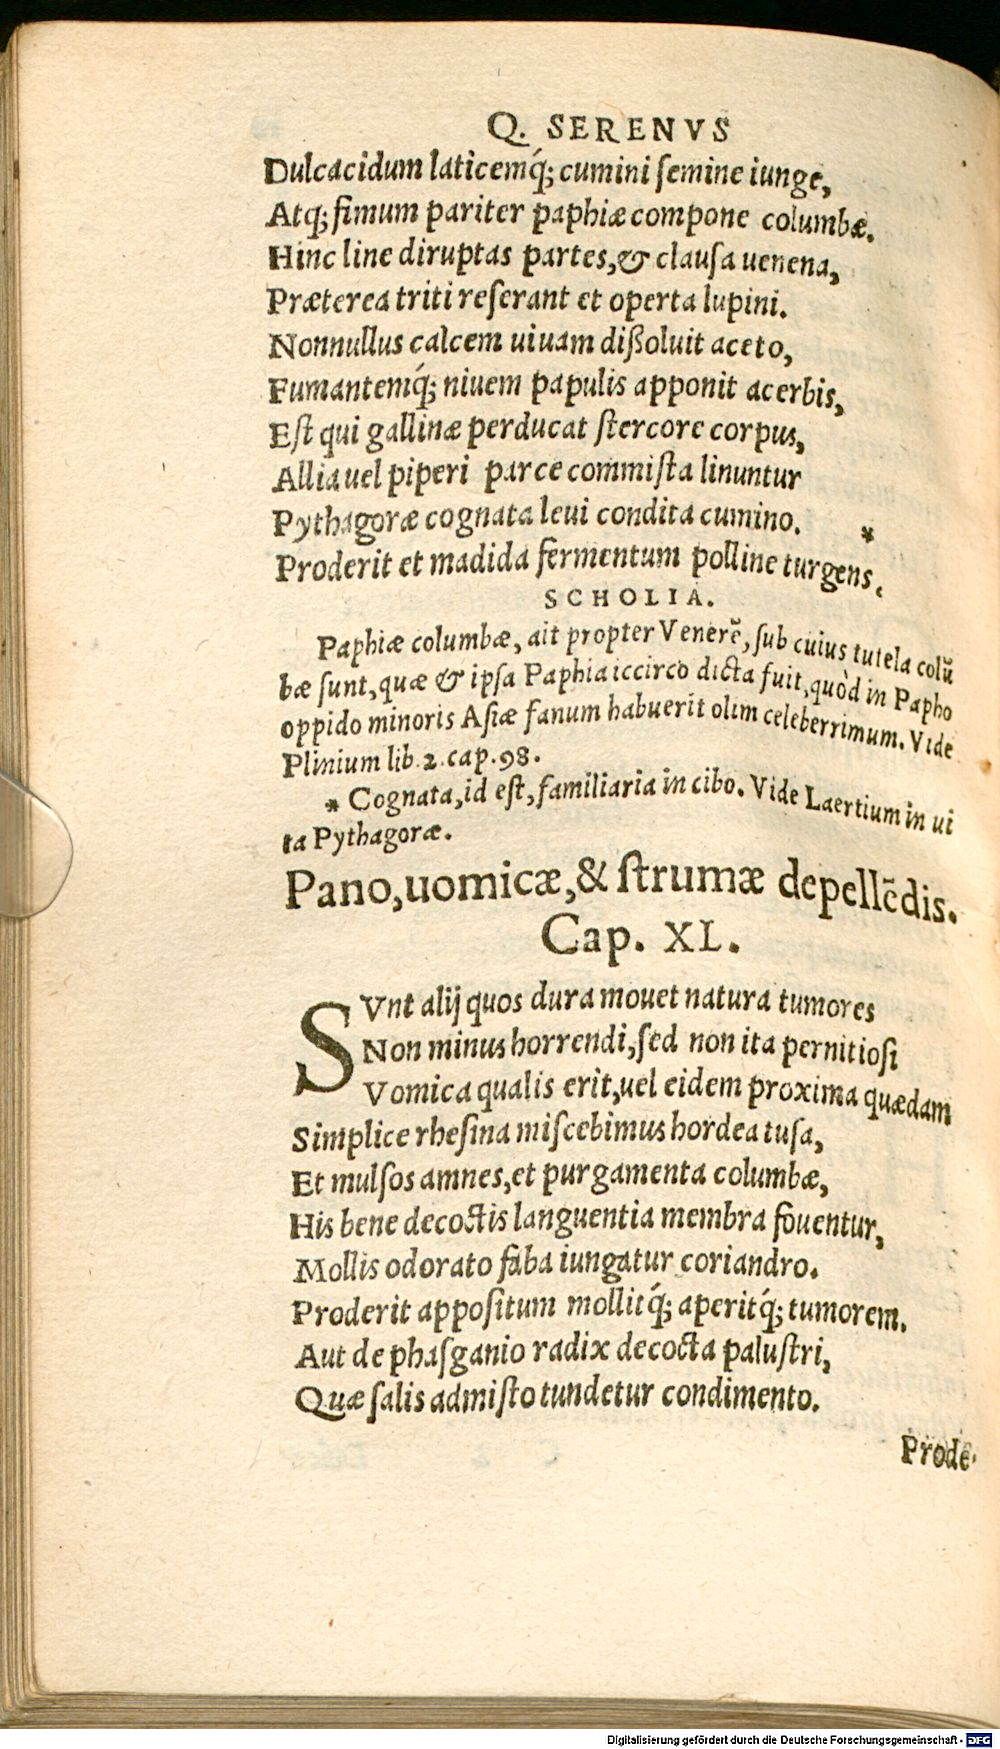 Q. SERENVS
Dulcacidum laticemq́; cumini ſemine iunge,
Atq; fimum pariter paphiæ compone columbæ.
Hinc line diruptas partes, & clauſa uenena,
Præterea triti reſerant et operta lupini.
Nonnullus calcem uiuam dißoluit aceto,
Fumantemq́; niuem papulis apponit acerbis,
Eſt qui gallinæ perducat ſtercore corpus,
Allia uel piperi parce commiſta linuntur
Pythagoræ cognata leui condita cumino. *
Proderit et madida fermentum polline turgens.
SCHOLIA.
Paphiæ columbæ, ait propter Venerẽ, ſub cuius tutela colũ
bæ ſunt, quæ & ipſa Paphia iccirco dicta fuit, quòd in Papho
oppido minoris Aſiæ fanum habuerit olim celeberrimum. Vide
Plinium lib. 2. cap. 98.
* Cognata, id eſt, familiaria in cibo. Vide Laertium in ui
ta Pythagoræ.
Pano, uomicæ, & ſtrumæ depellẽdis.
Cap. XL.
SVnt alij quos dura mouet natura tumores
Non minus horrendi, ſed non ita pernitioſi
Vomica qualis erit, uel eidem proxima quædam
Simplice rheſina miſcebimus hordea tuſa,
Et mulſos amnes, et purgamenta columbæ,
His bene decoctis languentia membra fouentur,
Mollis odorato faba iungatur coriandro.
Proderit appoſitum mollitq́; aperitq́; tumorem.
Aut de phaſganio radix decocta paluſtri,
Quæ ſalis admiſto tundetur condimento.
Prode-
Digitalisierung gefördert durch die Deutsche Forschungsgemeinschaft - DFG